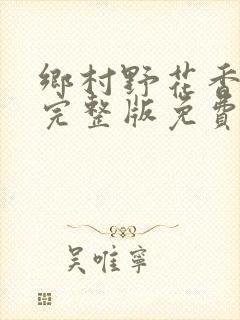 鄉村野花香
完整版免費
吳唯寧